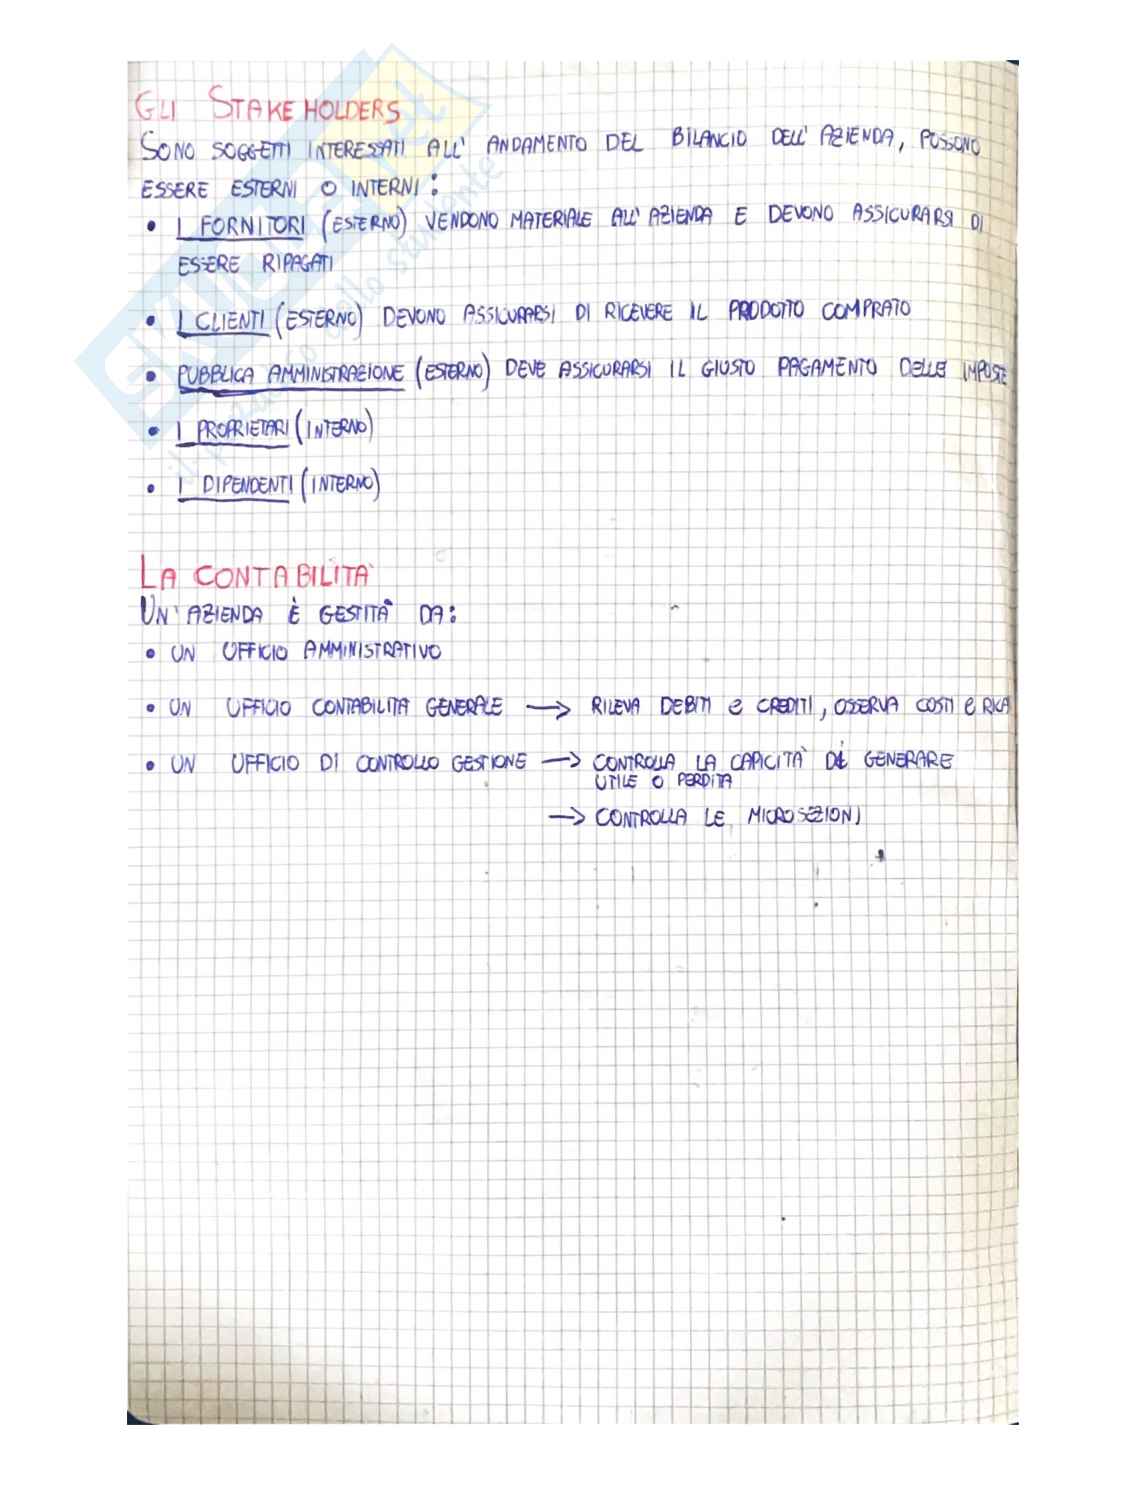 GLI STAKEHOLDERS
SONO SOGGETTI INTERESSATI ALL' ANDAMENTO DEL BILANCIO DELL' AZIENDA, POSSONO
ESSERE ESTERNI O INTERNI:
• I FORNITORI (ESTERNO) VENDONO MATERIALE ALL' AZIENDA E DEVONO ASSICURARSI DI
ESSERE RIPAGATI
• I CLIENTI (ESTERNO) DEVONO ASSICURARSI DI RICEVERE IL PRODOTTO COMPRATO
• PUBBLICA AMMINISTRAZIONE (ESTERNO) DEVE ASSICURARSI IL GIUSTO PAGAMENTO DELLE IMPOSTE
• I PROPRIETARI (INTERNO)
• I DIPENDENTI (INTERNO)
LA CONTABILITÀ
UN' AZIENDA È GESTITA DA:
• UN UFFICIO AMMINISTRATIVO
• UN UFFICIO CONTABILITA GENERALE → RILEVA DEBITI e CREDITI, OSSERVA COSTI e RICA
• UN UFFICIO DI CONTROLLO GESTIONE → CONTROLLA LA CAPICITÀ DI GENERARE
UTILE O PERDITA
→ CONTROLLA LE MICROSEZIONI